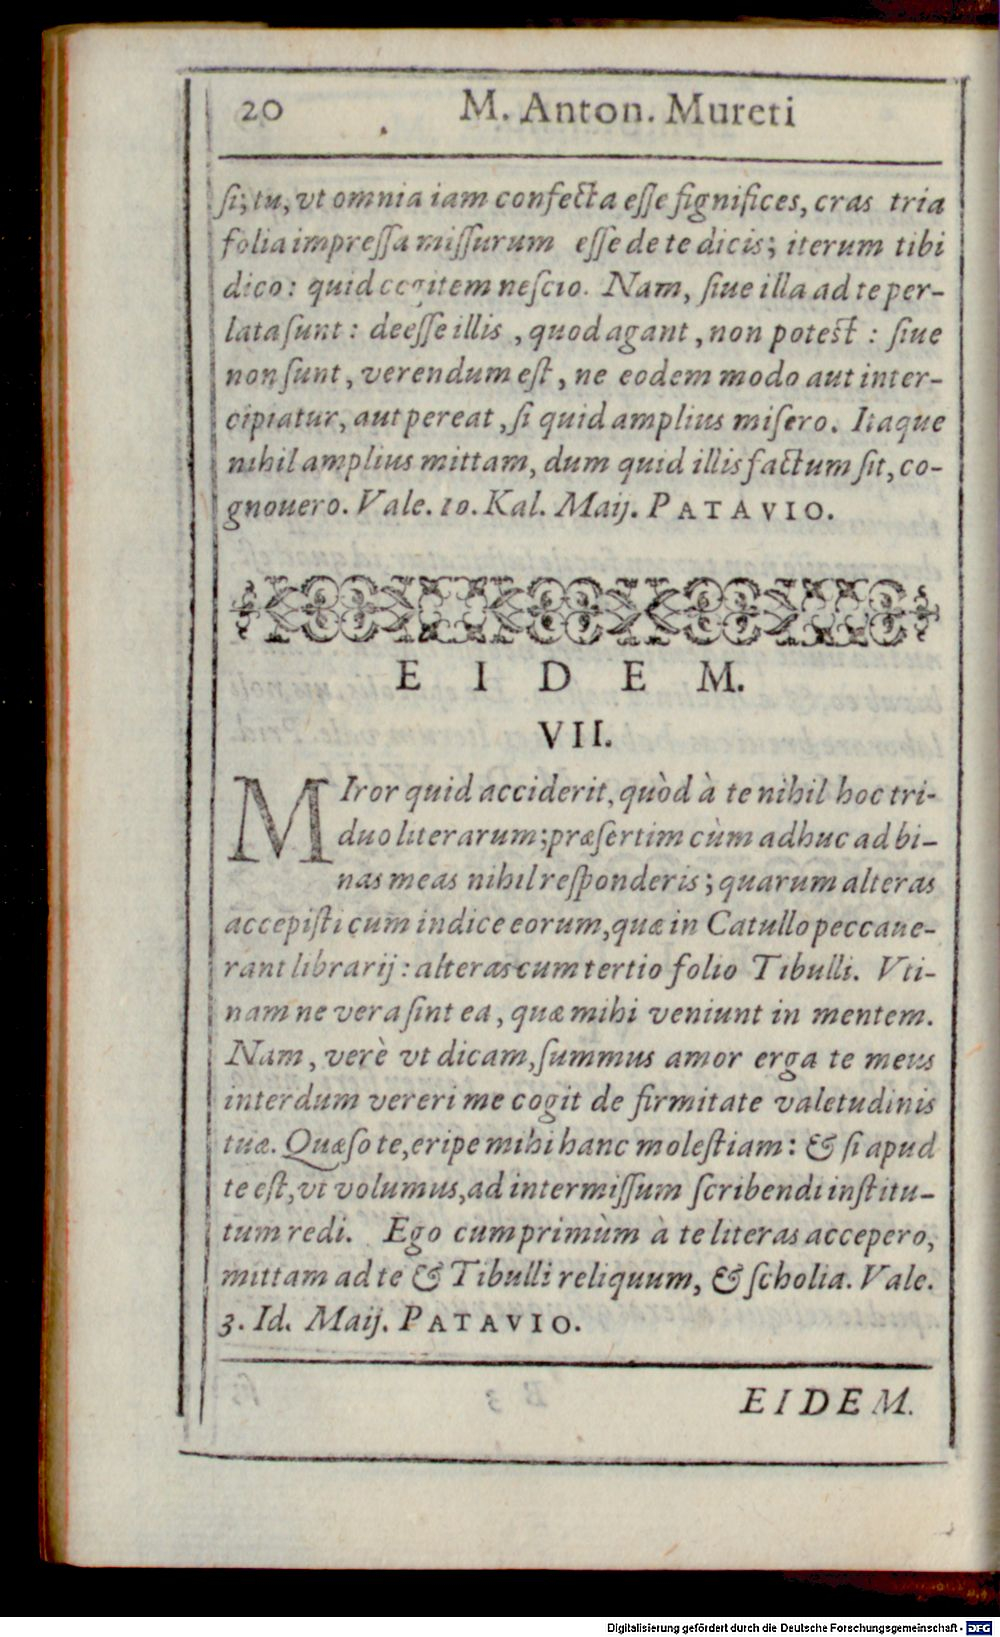 20 M. Anton. Mureti
ſi; tu, vt omnia iam confecta eſſe ſignifices, cras tria
folia impreſſa miſſurum eſſe de te dicis; iterum tibi
dico: quid cogitem neſcio. Nam, ſiue illa ad te per-
lata ſunt: deeſſe illis, quod agant, non poteſt: ſiue
non ſunt, verendum eſt, ne eodem modo aut inter-
cipiatur, aut pereat, ſi quid amplius miſero. Itaque
nihil amplius mittam, dum quid illis factum ſit, co-
gnouero. Vale. 10. Kal. Maij. PATAVIO.
EIDEM.
VII.
MIror quid acciderit, quòd à te nihil hoc tri-
duo literarum; præſertim cùm adhuc ad bi-
nas meas nihil reſponderis; quarum alteras
accepiſti cum indice eorum, quæ in Catullo peccaue-
rant librarij: alteras cum tertio folio Tibulli. Vti-
nam ne vera ſint ea, quæ mihi veniunt in mentem.
Nam, verè vt dicam, ſummus amor erga te meus
interdum vereri me cogit de firmitate valetudinis
tuæ. Quæſo te, eripe mihi hanc moleſtiam: & ſi apud
te eſt, vt volumus, ad intermiſſum ſcribendi inſtitu-
tum redi. Ego cum primùm à te literas accepero,
mittam ad te & Tibulli reliquum, & ſcholia. Vale.
3. Id. Maij. PATAVIO.
EIDEM.
Digitalisierung gefördert durch die Deutsche Forschungsgemeinschaft - DFG